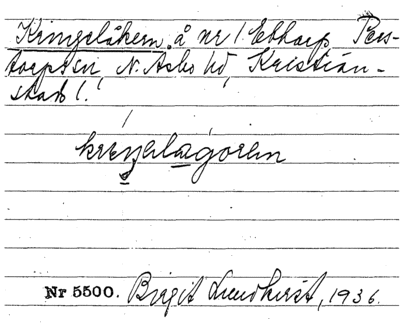 Kringelåkern å nr 1. Ebbarp, Pers-
torps sn, N. Åsbo hd, Kristian-
stads l.
Nr 5500. Birgit Lundkvist, 1936.